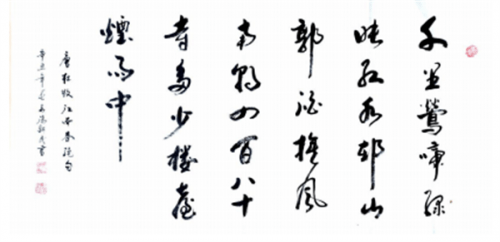 千里鶯啼绿
映红水邨山
郭酒旗风
南朝四百八十
寺多少楼臺
煙雨中
唐杜牧江南春绝句
辛丑年